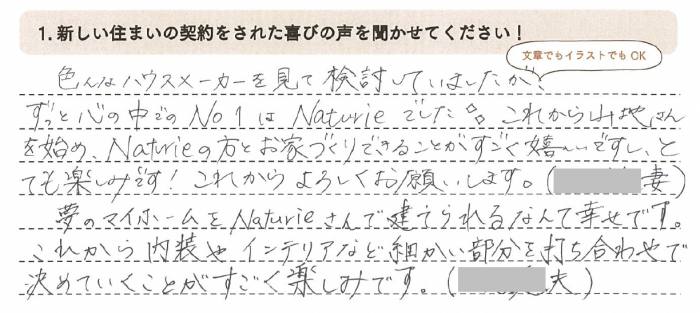 1. 新しい住まいの契約をされた喜びの声を聞かせてください！
文章でもイラストでもOK
色んなハウスメーカーを見て検討していましたが、
ずっと心の中でのNo1はNaturieでした。これから山地さん
を始め、Naturieの方とお家づくりできることがすごく嬉しいですし、と
ても楽しみです！これからよろしくお願いします。（妻）
夢のマイホームをNaturieさんで建てられるなんて幸せです。
これから内装やインテリアなど細かい部分を打ち合わせで
決めていくことがすごく楽しみです。（夫）